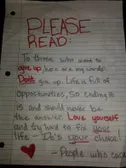 PLEASE
READ:
To those who want to
give up here are my words:
Don't give up. Life is full of
opportunities, so ending it
is and should never be
the answer. Love yourself
and try hard to fix your
life - It's your choice!
- People who care